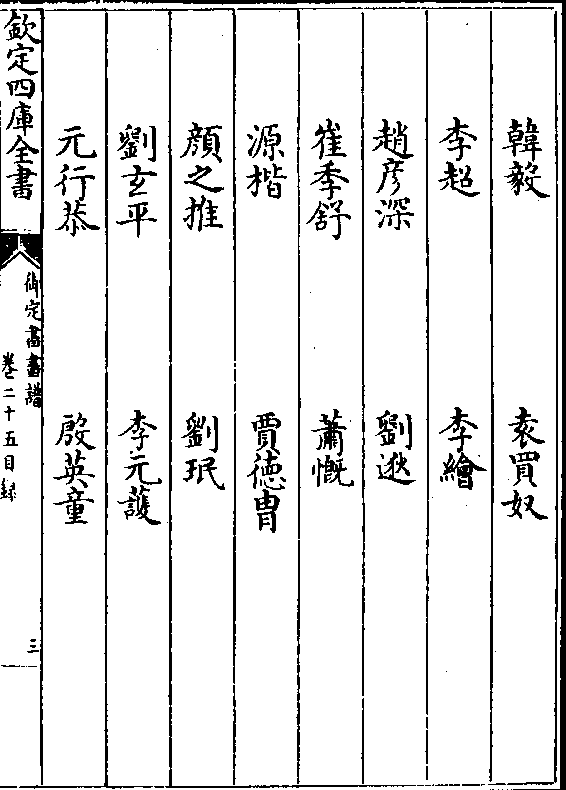 韓毅 袁買奴
李超 李繪
趙彦深 劉逖
崔季舒 蕭慨
源楷 賈德冑
顔之推 劉珉
劉玄平 李元護
元行恭 殷英童
欽定四庫全書
御定書畫譜
卷二十五目録
三